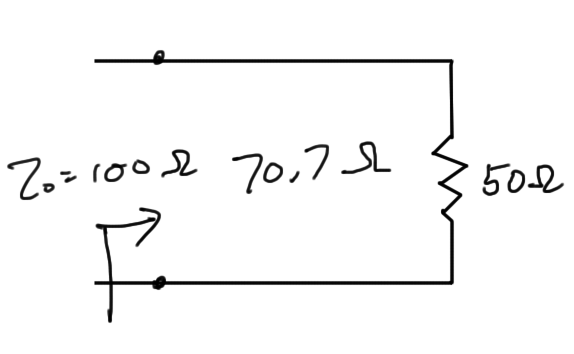 Z₀=100Ω 70.7Ω 50Ω